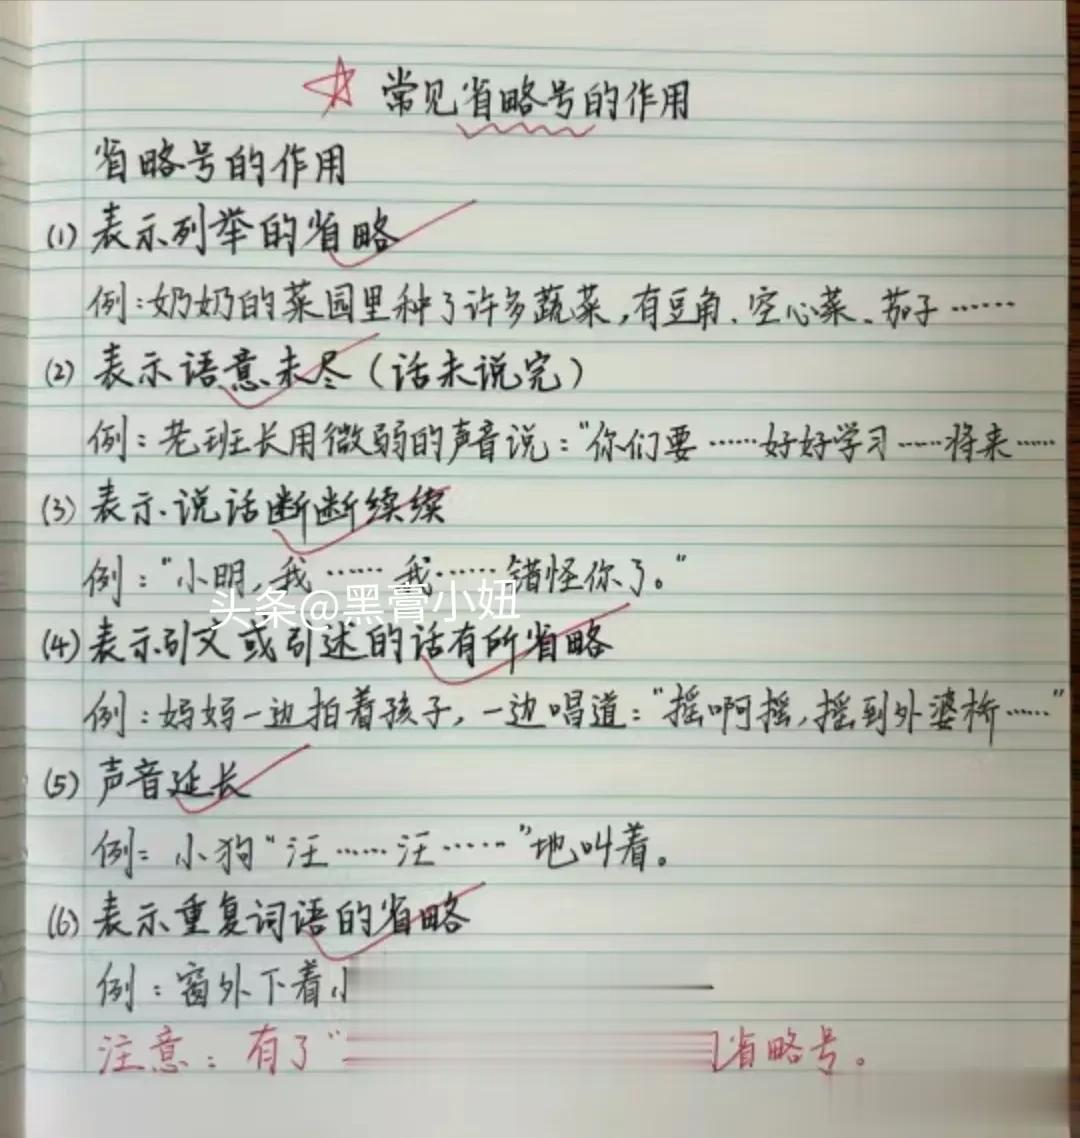 常见省略号的作用
省略号的作用
(1) 表示列举的省略
例:奶奶的菜园里种了许多蔬菜,有豆角、空心菜、茄子……
(2) 表示语意未尽(话未说完)
例:老班长用微弱的声音说:"你们要……好好学习……将来……
(3) 表示说话断断续续
例:"小明,我……我……错怪你了。"
头条@黑膏小妞
(4) 表示引文或引述的话有所省略
例:妈妈一边拍着孩子,一边唱道:"摇啊摇,摇到外婆桥……"
(5) 声音延长
例:小狗"汪……汪……"地叫着。
(6) 表示重复词语的省略
例:窗外下着
注意:有了" 省略号。